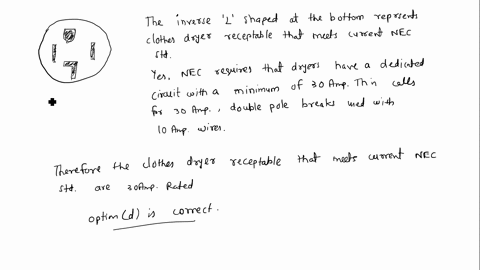 The inverse 'L' shaped at the bottom represents
clothes dryer receptable that meets current NEC
std.
Yes, NEC requires that dryers have a dedicated
circuit with a minimum of 30 Amp. This calls
for 30 Amp., double pole breaks used with
10 Amp. wires.
Therefore the clothes dryer receptable that meets current NEC
std. are 30Amp. Rated
option (d) is correct.